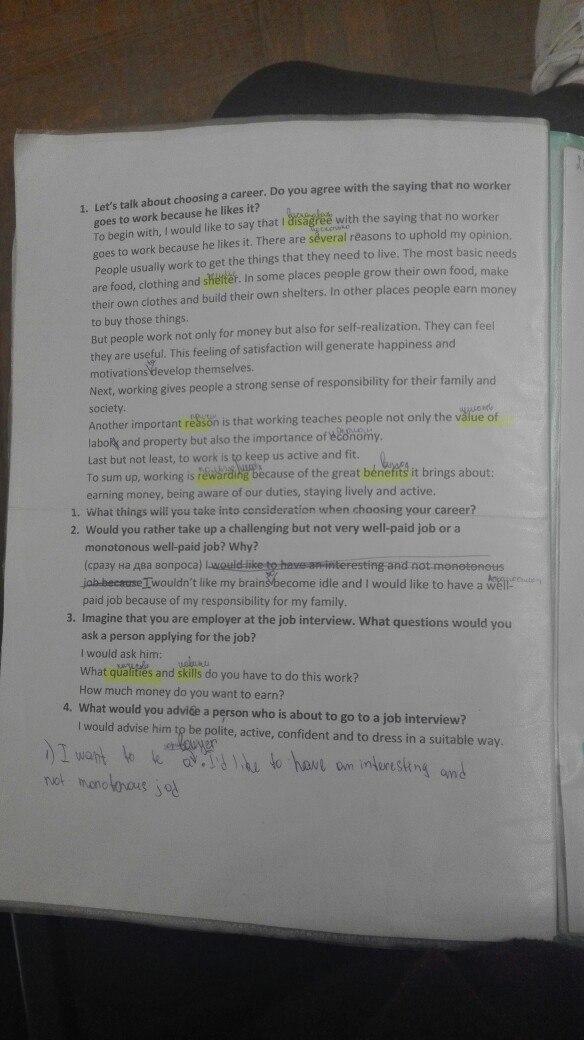 1. Let's talk about choosing a career. Do you agree with the saying that no worker
goes to work because he likes it?
To begin with, I would like to say that I disagree with the saying that no worker
goes to work because he likes it. There are several reasons to uphold my opinion.
People usually work to get the things that they need to live. The most basic needs
are food, clothing and shelter. In some places people grow their own food, make
their own clothes and build their own shelters. In other places people earn money
to buy those things.
But people work not only for money but also for self-realization. They can feel
they are useful. This feeling of satisfaction will generate happiness and
motivations develop themselves.
Next, working gives people a strong sense of responsibility for their family and
society.
Another important reason is that working teaches people not only the value of
labor and property but also the importance of economy.
Last but not least, to work is to keep us active and fit.
To sum up, working is rewarding because of the great benefits it brings about:
earning money, being aware of our duties, staying lively and active.
1. What things will you take into consideration when choosing your career?
2. Would you rather take up a challenging but not very well-paid job or a
monotonous well-paid job? Why?
(сразу на два вопроса) I would like to have an interesting and not monotonous
job because I wouldn't like my brains become idle and I would like to have a well-
paid job because of my responsibility for my family.
3. Imagine that you are employer at the job interview. What questions would you
ask a person applying for the job?
I would ask him:
What qualities and skills do you have to do this work?
How much money do you want to earn?
4. What would you advice a person who is about to go to a job interview?
I would advise him to be polite, active, confident and to dress in a suitable way.
lawyer
1) I want to be a. I'd like to have an interesting and
not monotonous job